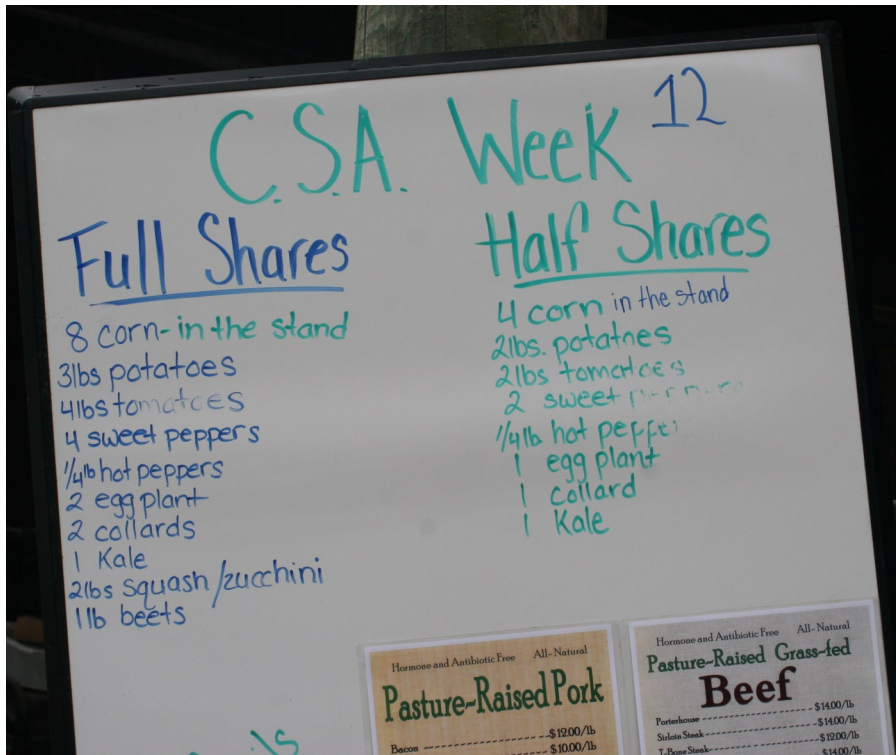 C.S.A. Week 12
Full Shares
8 corn - in the stand
3lbs potatoes
4lbs tomatoes
4 sweet peppers
1/4lb hot peppers
2 egg plant
2 collards
1 Kale
2lbs squash/zucchini
1lb beets
Half Shares
4 corn in the stand
2lbs. potatoes
2lbs tomatoes
2 sweet peppers
1/4lb hot peppers
1 egg plant
1 collard
1 Kale
Hormone and Antibiotic Free All-Natural
Pasture-Raised Pork
Bacon $12.00/lb
$10.00/lb
Hormone and Antibiotic Free All-Natural
Pasture-Raised Grass-fed
Beef
Porterhouse $14.00/lb
Sirloin Steak $14.00/lb
T-Bone Steak $12.00/lb
$14.00/lb